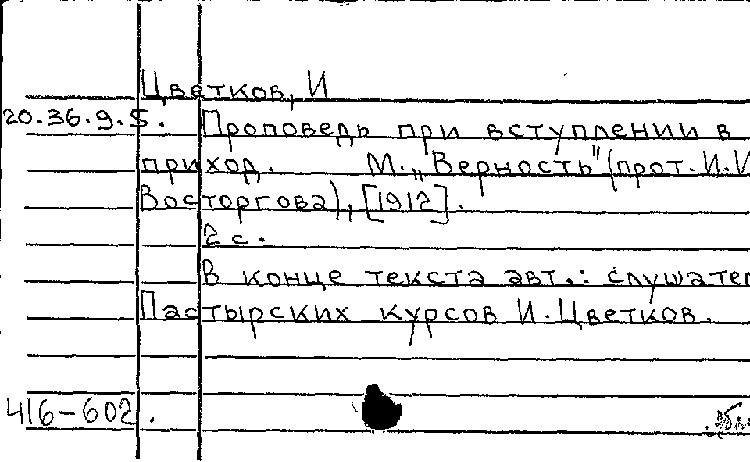 Цветков, И
20.36.9.5. Проповедь при вступлении в
приход. М. „Верность" (прот. И.И
Восторгова), [1912].
2 с.
В конце текста авт.: слушател
Пастырских курсов И. Цветков.
416-602.